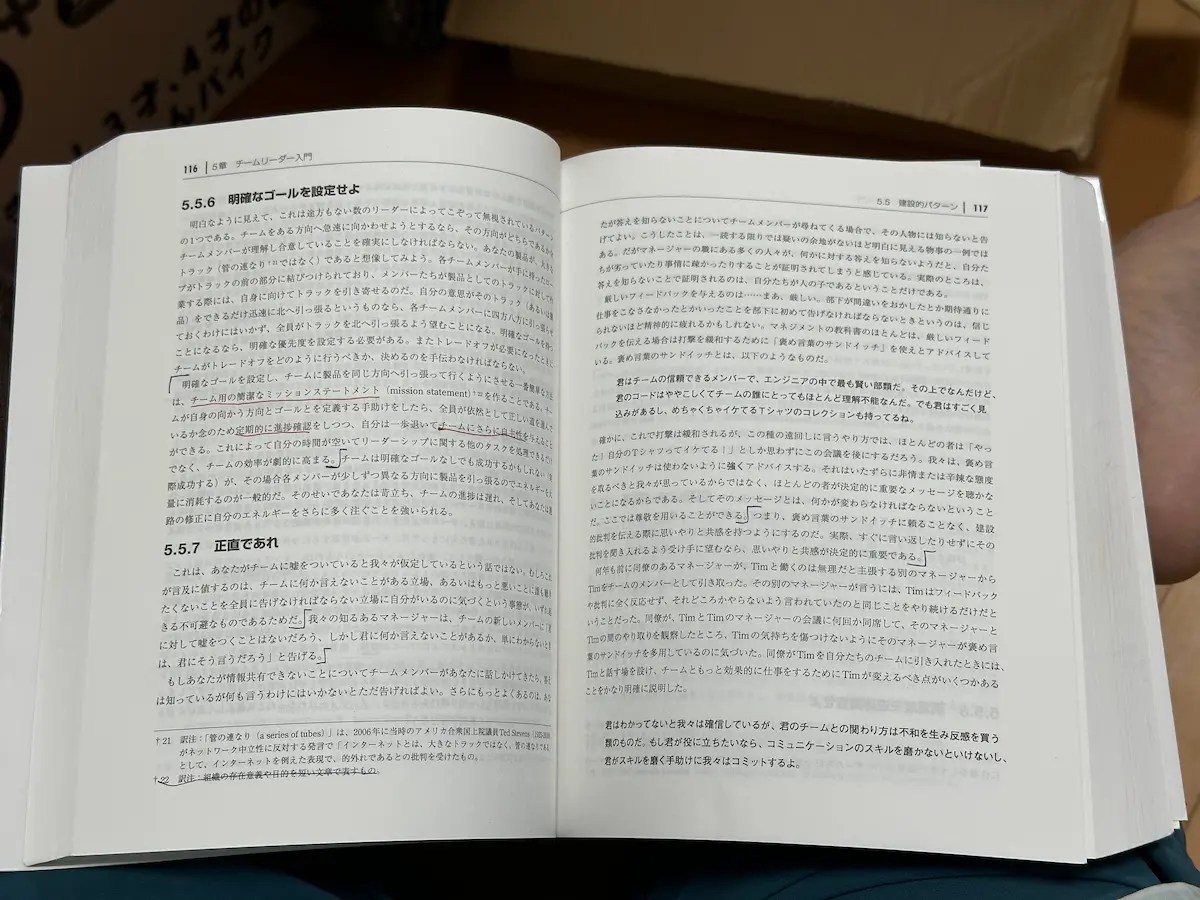 才.4才の
3才.
んバイク
116 | 5章 チームリーダー入門
5.5.6 明確なゴールを設定せよ
明白なように見えて、これは途方もない数のリーダーによってこぞって無視されているパターン
の1つである。チームをある方向へ急速に向かわせようとするなら、その方向がどちらであるかを
チームメンバーが理解し合意していることを確実にしなければならない。あなたの製品が、大きな
トラック（管の連なり†21ではなく）であると想像してみよう。各チームメンバーが手に持ったロー
プがトラックの前の部分に結びつけられており、メンバーたちが製品としてのトラックに対して作
業する際には、自身に向けてトラックを引き寄せるのだ。自分の意思がそのトラック（あるいは製
品）をできるだけ迅速に北へ引っ張るというものなら、各チームメンバーに四方八方に引っ張らせ
ておくわけにはいかず、全員がトラックを北へ引っ張るよう望むことになる。明確なゴールを持つ
ことになるなら、明確な優先度を設定する必要がある。またトレードオフが必要になったときに
チームがトレードオフをどのように行うべきか、決めるのを手伝わなければならない。
明確なゴールを設定し、チームに製品を同じ方向へ引っ張って行くようにさせる一番簡単な方法
は、チーム用の簡潔なミッションステートメント（mission statement）†22を作ることである。チー
ムが自身の向かう方向とゴールとを定義する手助けをしたら、全員が依然として正しい道を進んで
いるか念のため定期的に進捗確認をしつつ、自分は一歩退いてチームにさらに自主性を与えること
ができる。これによって自分の時間が空いてリーダーシップに関する他のタスクを処理できるだけ
でなく、チームの効率が劇的に高まる。チームは明確なゴールなしでも成功するかもしれない（実
際成功する）が、その場合各メンバーが少しずつ異なる方向に製品を引っ張るのでエネルギーを大
量に消耗するのが一般的だ。そのせいであなたは苛立ち、チームの進捗は遅れ、そしてあなたは進
路の修正に自分のエネルギーをさらに多く注ぐことを強いられる。
5.5.7 正直であれ
これは、あなたがチームに嘘をついていると我々が仮定しているという話ではない。むしろこれ
が言及に値するのは、チームに何か言えないことがある立場、あるいはもっと悪いことに誰も聴き
たくないことを全員に告げなければならない立場に自分がいるのに気づくという事態が、いずれ起
きる不可避なものであるためだ。我々の知るあるマネージャーは、チームの新しいメンバーに「君
に対して嘘をつくことはないだろう、しかし君に何か言えないことがあるか、単にわからないとき
は、君にそう言うだろう」と告げる。
もしあなたが情報共有できないことについてチームメンバーがあなたに話しかけてきたら、答え
は知っているが何も言うわけにはいかないとただ告げればよい。さらにもっとよくあるのは、あな
†21 訳注：「管の連なり（a series of tubes）」は、2006年に当時のアメリカ合衆国上院議員Ted Stevens
がネットワーク中立性に反対する発言で「インターネットとは、大きなトラックではなく、管の連なりである」
として、インターネットを例えた表現で、的外れであるとの批判を受けたもの。
†22 訳注：組織の存在意義や目的を短い文章で表すもの。
5.5 建設的パターン | 117
たが答えを知らないことについてチームメンバーが尋ねてくる場合で、その人物には知らないと告
げてよい。こうしたことは、一読する限りでは疑いの余地がないほど明白に見える物事の一例では
ある。だがマネージャーの職にある多くの人々が、何かに対する答えを知らないようだと、自分た
ちが劣っていたり事情に疎かったりすることが証明されてしまうと感じている。実際のところは、
答えを知らないことで証明されるのは、自分たちが人の子であるということだけである。
厳しいフィードバックを与えるのは……まあ、厳しい。部下が間違いをおかしたとか期待通りに
仕事をこなさなかったとかいったことを部下に初めて告げなければならないときというのは、信じ
られないほど精神的に疲れるかもしれない。マネジメントの教科書のほとんどは、厳しいフィード
バックを伝える場合は打撃を緩和するために「褒め言葉のサンドイッチ」を使えとアドバイスして
いる。褒め言葉のサンドイッチとは、以下のようなものだ。
君はチームの信頼できるメンバーで、エンジニアの中で最も賢い部類だ。その上でなんだけど、
君のコードはややこしくてチームの誰にとってもほとんど理解不能なんだ。でも君はすごく見
込みがあるし、めちゃくちゃイケてるTシャツのコレクションも持ってるね。
確かに、これで打撃は緩和されるが、この種の遠回しに言うやり方では、ほとんどの者は「やっ
た！自分のTシャツってイケてる！」としか思わずにこの会議を後にするだろう。我々は、褒め言
葉のサンドイッチは使わないように強くアドバイスする。それはいたずらに非情または辛辣な態度
を取るべきと我々が思っているからではなく、ほとんどの者が決定的に重要なメッセージを聴かな
いことになるからである。そしてそのメッセージとは、何かが変わらなければならないということ
だ。ここでは尊敬を用いることができる。つまり、褒め言葉のサンドイッチに頼ることなく、建設
的批判を伝える際に思いやりと共感を持つようにするのだ。実際、すぐに言い返したりせずにその
批判を聞き入れるよう受け手に望むなら、思いやりと共感が決定的に重要である。
何年も前に同僚のあるマネージャーが、Timと働くのは無理だと主張する別のマネージャーから
Timをチームのメンバーとして引き取った。その別のマネージャーが言うには、Timはフィードバック
や批判に全く反応せず、それどころかやらないよう言われていたのと同じことをやり続けるだけだと
いうことだった。同僚が、TimとTimのマネージャーの会議に何回か同席して、そのマネージャーと
Timの間のやり取りを観察したところ、Timの気持ちを傷つけないようにそのマネージャーが褒め言
葉のサンドイッチを多用しているのに気づいた。同僚がTimを自分たちのチームに引き入れたときには、
Timと話す場を設け、チームともっと効果的に仕事をするためにTimが変えるべき点がいくつかある
ことをかなり明確に説明した。
君はわかってないと我々は確信しているが、君のチームとの関わり方は不和を生み反感を買う
類のものだ。もし君が役に立ちたいなら、コミュニケーションのスキルを磨かないといけないし、
君がスキルを磨く手助けに我々はコミットするよ。